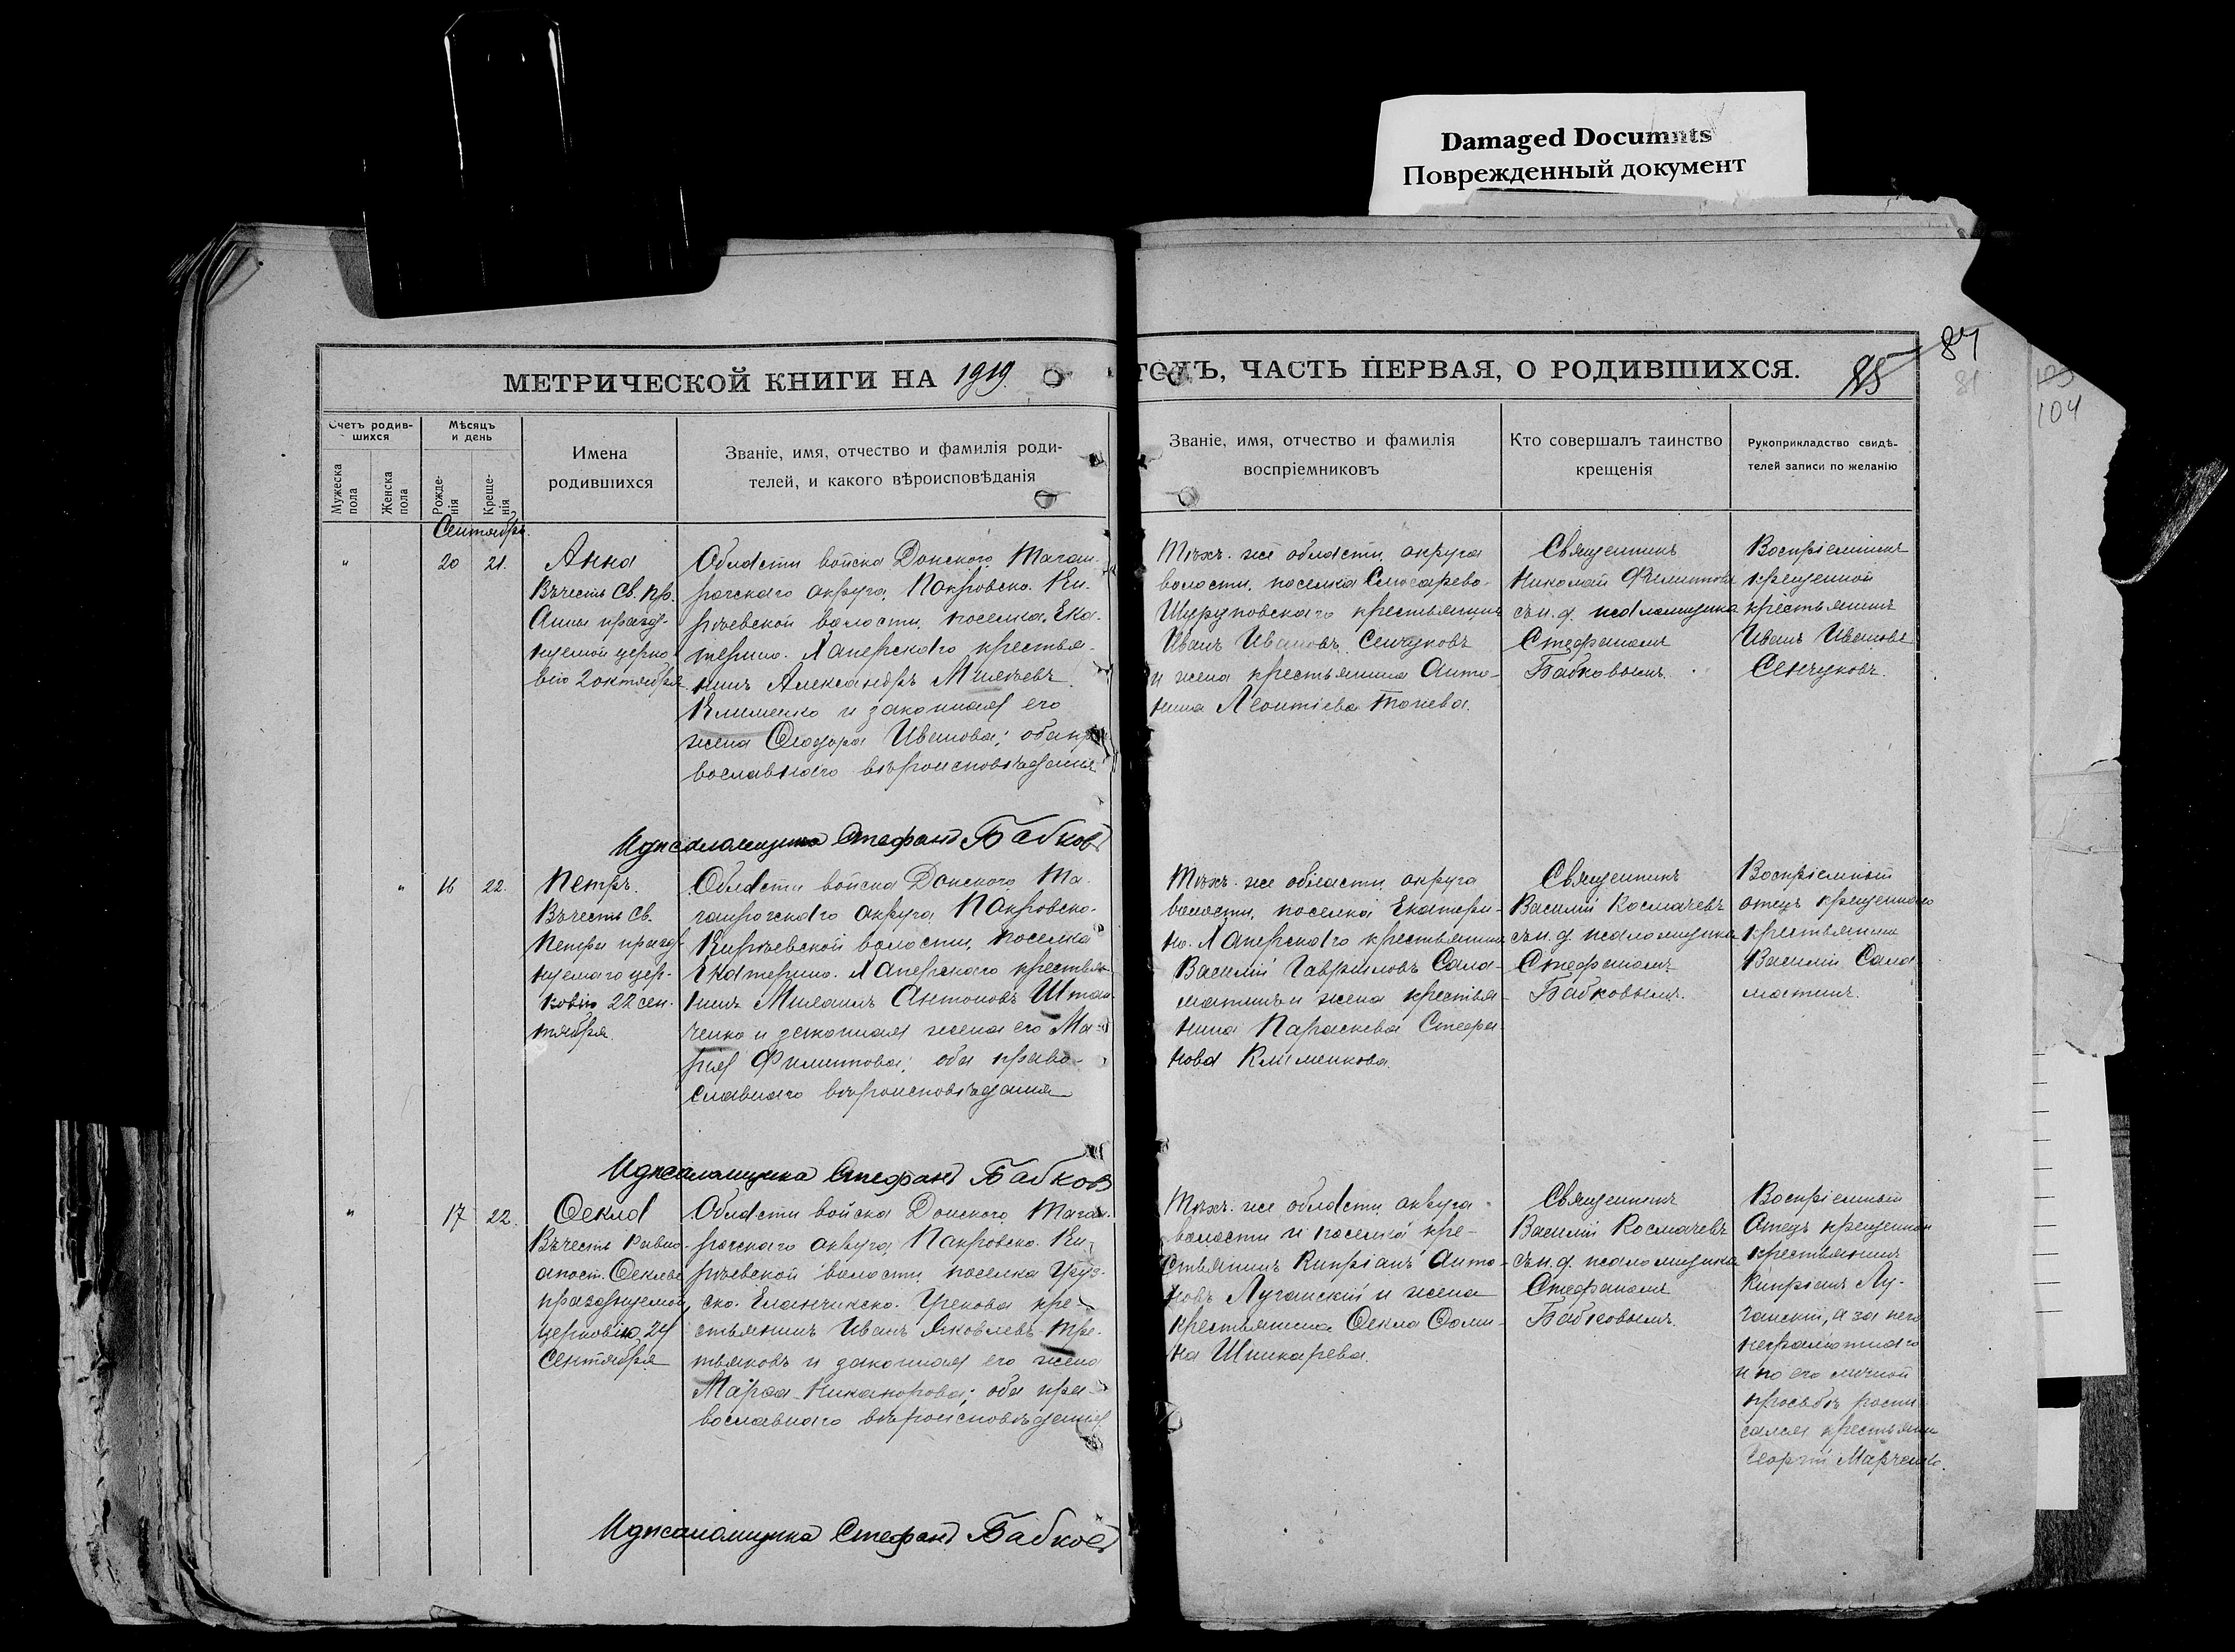 Damaged Documents
Поврежденный документ
МЕТРИЧЕСКОЙ КНИГИ НА 1919
ГОДЪ, ЧАСТЬ ПЕРВАЯ, О РОДИВШИХСЯ.
85
84
81
103
104
Счетъ родив-
шихся
Мужеска
пола
Женска
пола
Мѣсяцъ
и день
Рожде-
нія
Креще-
нія
Имена
родившихся
Званіе, имя, отчество и фамилія роди-
телей, и какого вѣроисповѣданія
Званіе, имя, отчество и фамилія
воспріемниковъ
Кто совершалъ таинство
крещенія
Рукоприкладство свидѣ-
телей записи по желанію
Сентябрь.
"
20
21.
Анна
Въ честь Св. пр.
Анны празд-
нуемой церко-
вію 2 октября
Области войска Донского, Таган-
рогскаго округа, Покровско-Ки-
рѣевской волости, поселка Ека-
терино-Хаперскаго крестья-
нинъ Александръ
Клименко и законная его
жена Ѳеодора Иванова; оба пра
вославнаго вѣроисповѣданія
Тѣхъ-же области, округа
волости, поселка Слюсарево-
крестьянинъ
Иванъ Ивановъ Сенчуковъ
и жена крестьянина Анто-
нина Леонтіева
Священникъ
Николай Филиппов
съ и. д. псаломщика
Стефаномъ
Бабковымъ.
Воспріемникъ
крещенной
крестьянинъ
Иванъ Ивановъ
Сенчуковъ.
И д псаломщика Стефанъ Бабковъ
"
16
22.
Петръ.
Въ честь Св.
Петра празд-
нуемаго цер-
ковію 22 сен-
тября.
Области войска Донского, Та-
ганрогскаго округа Покровско-
Кирѣевской волости, поселка
Екатерино-Хаперскаго крестья-
нинъ Михаилъ Антоновъ Штан-
ченко и законная жена его Ма-
рія Филиппова; оба право-
славнаго вѣроисповѣданія
Тѣхъ-же области, округа
волости, поселка Екатери-
но-Хаперскаго крестьянинъ
Василій Гавриловъ Сала-
матинъ и жена крестья-
нина Параскева Стефа-
нова Клименкова.
Священникъ
Василій Космачевъ
съ и. д. псаломщика
Стефаномъ
Бабковымъ.
Воспріемный
отецъ крещеннаго
крестьянинъ
Василій Сала
матинъ.
И д псаломщика Стефанъ Бабковъ
"
17
22.
Ѳекла
Въ честь равно-
апост. Ѳеклы
празднуемой
церковію 24
Сентября
Области войска Донского, Таган-
рогскаго округа, Покровско-Ки-
рѣевской волости, поселка Груз-
ско-Еланчинско-Грекова кре-
стьянинъ Иванъ Яковлевъ Тре-
тьяковъ и законная его жена
Марѳа Никанорова; оба пра-
вославнаго вѣроисповѣданія
Тѣхъ-же области, округа
волости и поселка кре-
стьянинъ Кипріанъ Анто-
новъ Луганскій и жена
крестьянина Ѳекла Ѳоми-
на Шинкарева.
Священникъ
Василій Космачевъ
съ и. д. псаломщика
Стефаномъ
Бабковымъ.
Воспріемный
Отецъ крещенной
крестьянинъ
Кипріанъ Лу-
ганскій, а за него
неграмотнаго
и по его личной
просьбѣ роспи
сался крестьянин
Георгій Марченко.
И д псаломщика Стефанъ Бабковъ